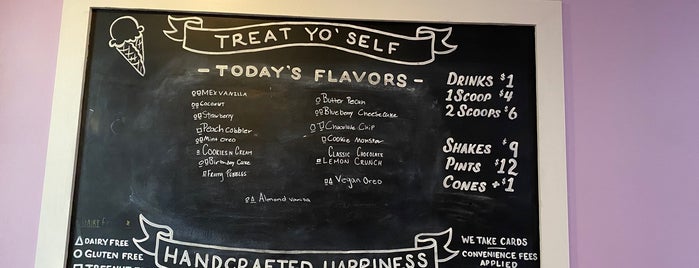 TREAT YO' SELF
- TODAY'S FLAVORS -
MEX VANILLA
COCONUT
Strawberry
Peach Cobbler
Mint Oreo
COOKIES N CREAM
Birthday Cake
Fruity Pebbles
Butter Pecan
Blueberry Cheesecake
Chocolate Chip
Cookie Monster
CLASSIC CHOCOLATE
LEMON CRUNCH
VEGAN OREO
Almond Vanilla
DRINKS $1
1 SCOOP $4
2 SCOOPS $6
SHAKES $9
PINTS $12
CONES +$1
△ DAIRY FREE
○ GLUTEN FREE
HANDCRAFTED HAPPINESS
WE TAKE CARDS
CONVENIENCE FEES
APPLIED